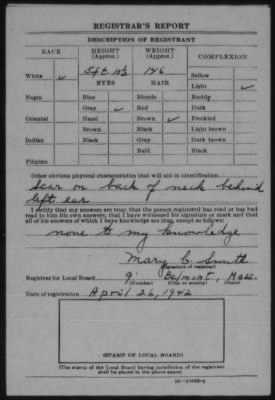 REGISTRAR'S REPORT
DESCRIPTION OF REGISTRANT
RACE HEIGHT (Approx.) WEIGHT (Approx.) COMPLEXION
5 ft. 146 Sallow
White ✓ EYES HAIR Light ✓
Negro Blue Blonde Ruddy
Gray ✓ Red Dark
Oriental Hazel Brown ✓ Freckled
Brown Black Light brown
Indian Black Gray Dark brown
Bald Black
Filipino
Other obvious physical characteristics that will aid in identification
Scar on back of neck behind
left ear
I certify that my answers are true; that the person registered has read or has had
read to him his own answers; that I have witnessed his signature or mark and that
all of his answers of which I have knowledge are true, except as follows:
none to my knowledge
Mary C. Smith
(Signature of registrar)
Registrar for Local Board 9 Belmont, Mass.
(Number) (City or county) (State)
Date of registration April 26, 1942
(STAMP OF LOCAL BOARD)
(The stamp of the Local Board having jurisdiction of the registrant
shall be placed in the above space)